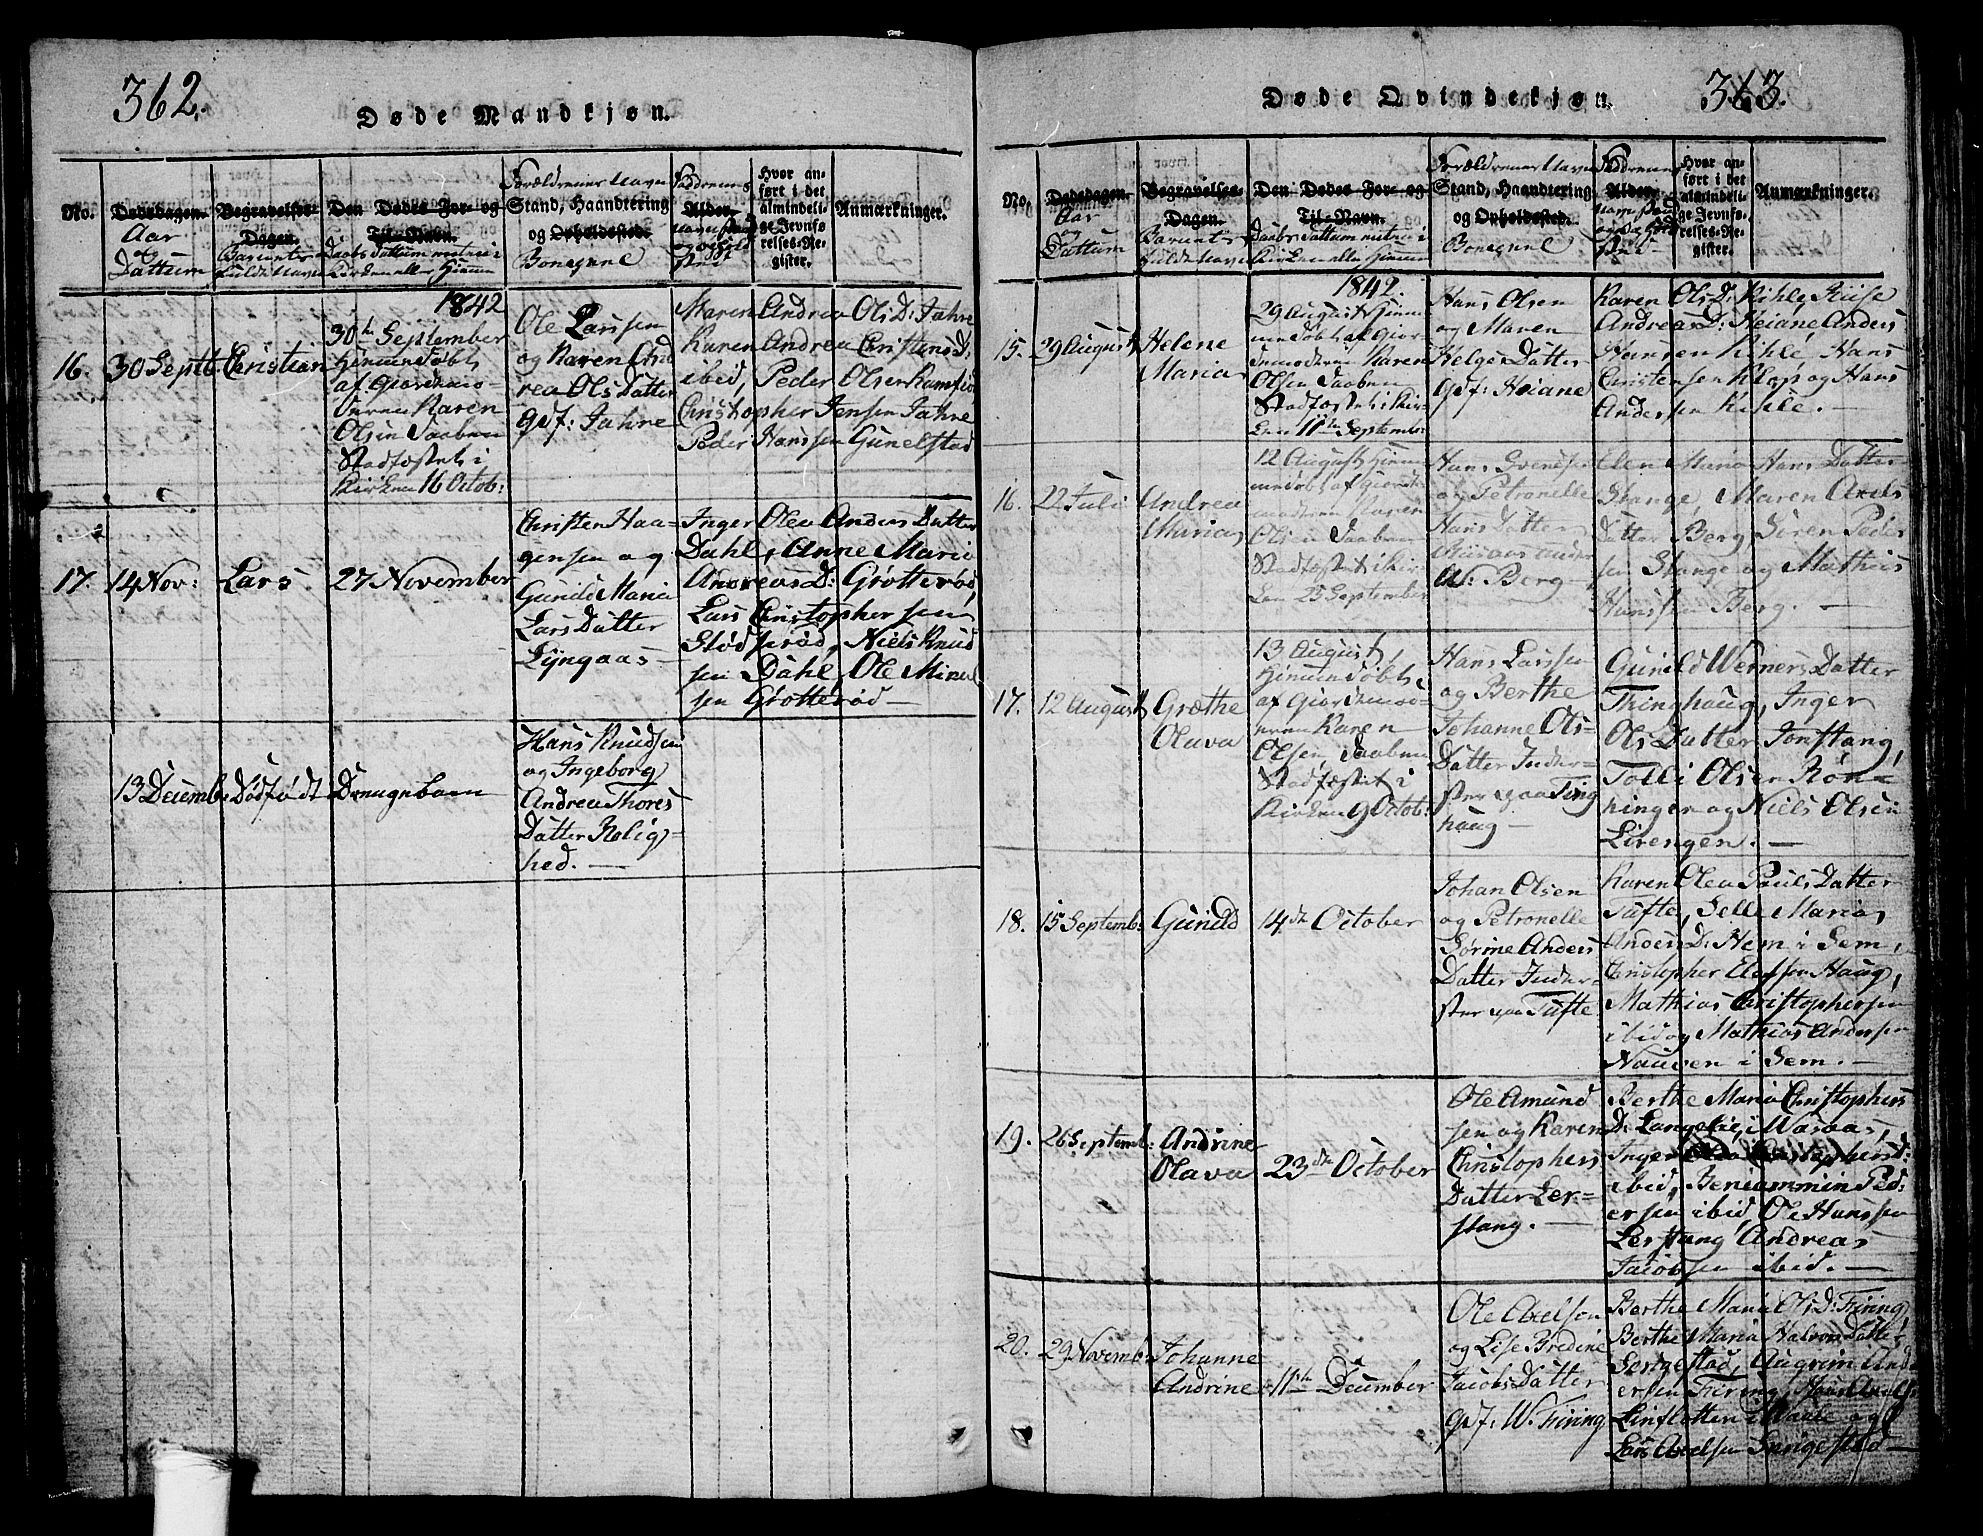 362.
Døde Mandkjøn.
No.
Dødsdagen.
Aar
og
Dattum
Begravelses-
Dagen.
Barnets
fulde Navn
Den Dødes For- og
Til-Navn.
Daabs Dattum enten i
Kirken eller Hiemme
Forældrenes Navn
Stand, Haandtering
og Opholdssted.
Boeegne
Faddernes
Alder.
Navn Stand
og Opholds
sted
Hvor an-
ført i det
almindeli-
ge Jevnfø-
relses-Re-
gister.
Anmærkninger.
16.
30 Septb.
Christian
1842
30te September
hjemmedøbt
af Giordemo-
deren Karen
Olsen Daaben
Stadfæstet i
Kirken 16 Octob:
Ole Larsen
og Karen And
rea Ols Datter
gdf: Jahre
Maren Andrea Ols D: Jahre
Karen Andrea Christens D:
ibid, Peder Olsen
Christopher Jensen Jahre
Peder Hanssen Gunelstad
17.
14 Nov:
Lars
27 November
Christen Haa-
gensen og
Gunild Maria
Lars Datter
Lyngaas
Inger Olea Anders Datter
Dahl, Anne Maria
Andreas D: Grøtterød,
Lars Christophersen
Stødserød, Niels Knud
sen Dahl, Ole Mikel
sen Grøtterød
13 Decemb:
Dødfødt
Drengebarn
Hans Knudsen
og Ingeborg
Andrea Thores
Datter Rolig-
hed.
Døde Qvindekjøn.
363.
No.
Dødsdagen
Aar
og
Dattum
Begravelses-
Dagen.
Barnets
fulde Navn
Den Dødes For- og
Til-Navn.
Daabs Dattum enten i
Kirken eller Hjemme
Forældrenes Navn
Stand, Haandtering
og Opholdssted.
Boeegne
Faddernes
Alder.
Navn Stand
og Opholds
sted
Hvor an-
ført i det
almindeli-
ge Jevnfø-
relses-Re-
gister.
Anmærkninger.
15.
29 August
Helene
Maria
1842.
29 August hjem
medøbt af Gjor
demoderen Karen
Olsen Daaben
Stadfæstet i Kir
ken 11te Septemb:
Hans Olsen
og Maren
Helge Datter
gdf: Heiane
Karen Ols D: Kihle
Andreas D: Heiane Anders
Hansen Kihle, Hans
Christensen Klop og Hans
Andersen Kihle.
16.
22 Juli
Andrea
Maria
12 August hjem
medøbt af Gjord
emoderen Karen
Olsen Daaben
Stadfæstet i Kir
ken 25 September
Hans Svends
og Petronelle
Hans Datter
under
W: Berg
Elen Maria Hans Datter
Stange, Maren Axels
Datter Berg, Søren Peder
sen Stange og Mathias
Hansen Berg.
17.
12 August
Grethe
Olava
13 August
hjemmedøbt
af Giordemod
eren Karen
Olsen, Daaben
Stadfæstet i
Kirken 9 Octob:
Hans Larsen
og Berthe
Johanne Ols-
Datter Inder-
ster paa Ting
haug
Gunild Werners Datter
Thinghaug, Inger
Ols Datter Jonstang,
Tolli Olsen Røn-
ninger og Niels Olsen
Lirengen.
18.
15 Septemb:
Gunild
14de October
Johan Olsen
og Petronelle
Sørine Anders
Datter Inder-
ster paa Tufte
Karen Olea Pauls Datter
Tufte, Selle Maria
Anders D: Hem i Sem,
Christopher Elefsen Haug,
Mathias Christophersen
ibid og Mathias Andersen
Nauen i Sem.
19.
26 Septemb:
Andrine
Olava
23de October
Ole Amund
sen og Karen
Christophers
Datter Ler-
stang.
Berthe Maria Christophers
D: Langelie,
Inger Olea Christophersd:
ibid, Beniammin Ped:
ersen ibid, Ole Hanssen
Lerstang Andreas
Jacobsen ibid.
20.
29 Novemb:
Johanne
Andrine
11te December
Ole Axelsen
og Lise Bredine
Jacobs Datter
gdf: W. Firing
Berthe Maria Ols D: Firing
Berthe Maria Halvors Datter
Sorgestad, Augrim And
ersen Firing,
Linsletten i Waale og
Lars Axelsen